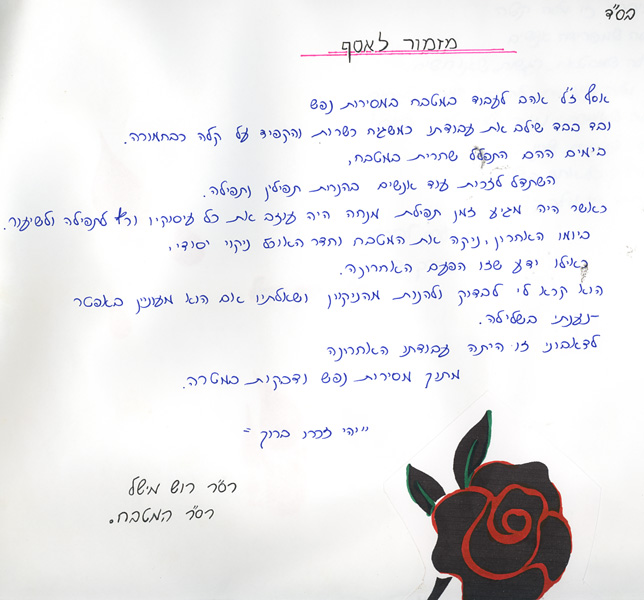 בס"ד
מזמור לאסף
אסף ז"ל אהב לעבוד במטבח במסירות נפש
ובד בבד שילב את עבודתו כמשגיח כשרות והקפיד על קלה כבחמורה.
בימים ההם התפלל שחרית במטבח,
השתדל לזכות עוד אנשים בהנחת תפילין ותפילה.
כאשר היה מגיע זמן תפילת מנחה היה עוזב את כל עיסוקיו ורץ לתפילה ולשיעור.
ביומו האחרון, ניקה את המטבח וחדר האוכל ניקוי יסודי,
כאילו ידע שזו הפעם האחרונה.
הוא קרא לי לבדוק ולהנות מהניקיון ושאלתיו אם הוא מעונין באפטר
-נענתי בשלילה.
לדאבוני זו היתה עבודתו האחרונה
מתוך מסירות נפש ודבקות במטרה.
"יהי זכרו ברוך"
רס"ר רוש מישל
רס"ר המטבח.